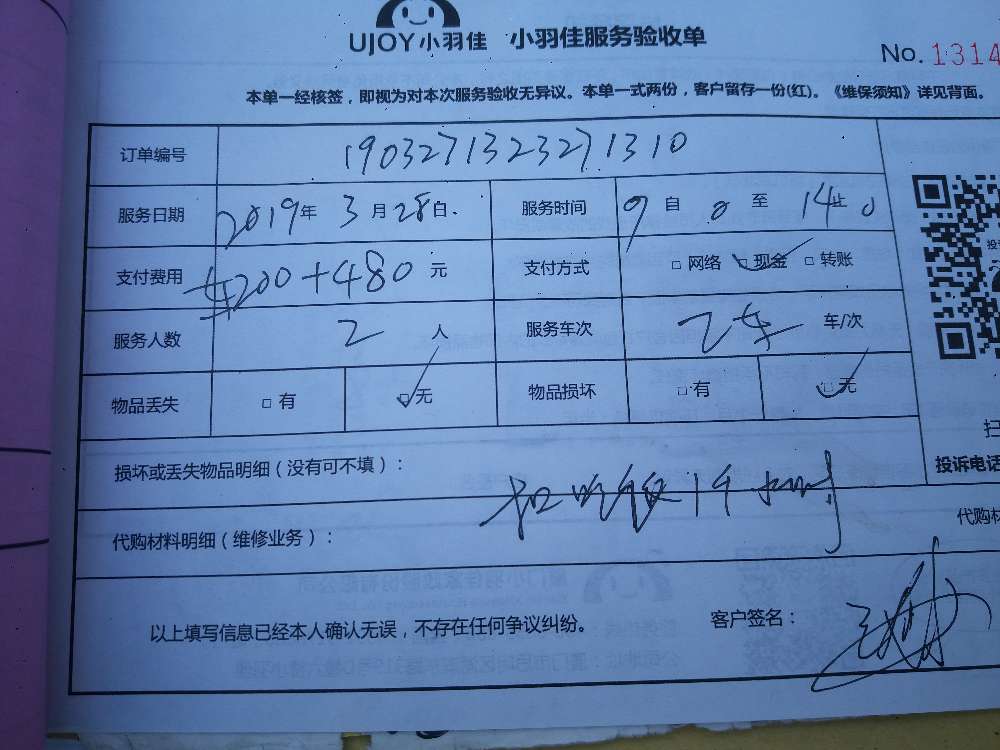 UJOY小羽佳 小羽佳服务验收单
No. 1314
本单一经核签，即视为对本次服务验收无异议。本单一式两份，客户留存一份(红)。《维保须知》详见背面。
订单编号 1903271323271310
服务日期 2019年 3月28日. 服务时间 9自0至14止0
支付费用 车200+480元 支付方式 □网络 ☑现金 □转账
服务人数 2人 服务车次 2车 车/次
物品丢失 □有 ☑无 物品损坏 □有 ☑无
损坏或丢失物品明细（没有可不填）：
投诉电话
扣吃饭1个小时
代购材料明细（维修业务）：
代购材
以上填写信息已经本人确认无误，不存在任何争议纠纷。 客户签名：